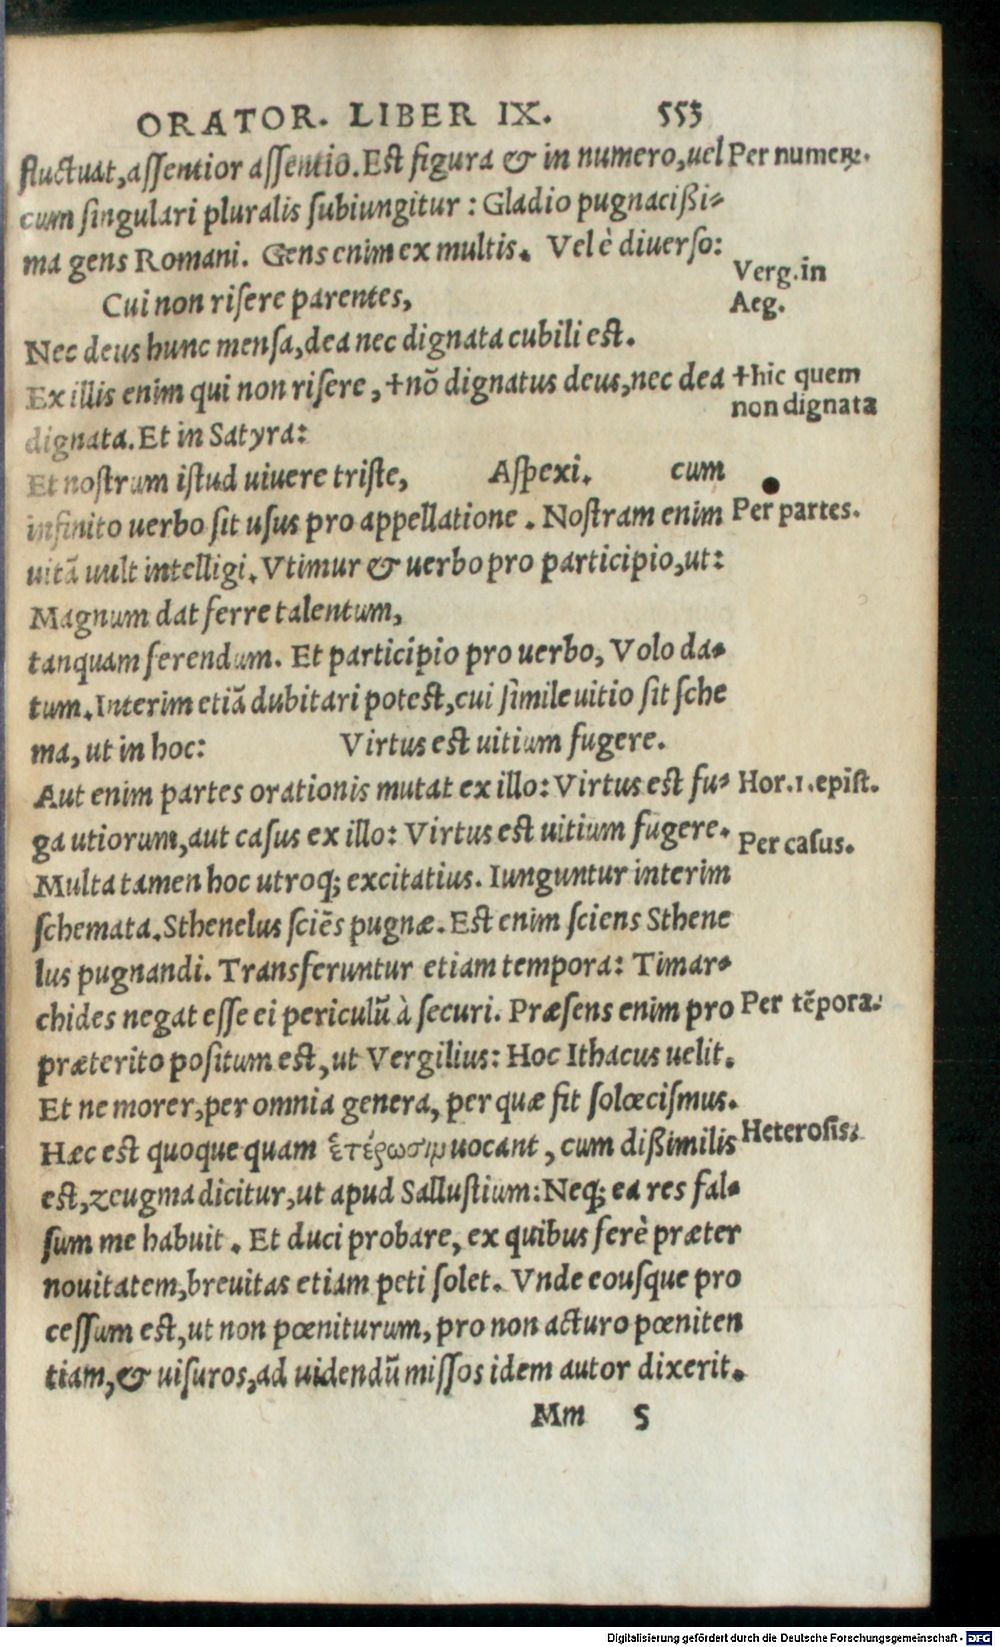 ORATOR. LIBER IX. 553
fluctuat, aſſentior aſſentio. Eſt figura & in numero, uel Per numerꝝ.
cum ſingulari pluralis ſubiungitur : Gladio pugnacißi-
ma gens Romani. Gens enim ex multis. Vel è diuerſo:
Verg. in
Cui non riſere parentes,
Aeg.
Nec deus hunc menſa, dea nec dignata cubili eſt.
Ex illis enim qui non riſere, †nō dignatus deus, nec dea †hic quem
non dignata
dignata. Et in Satyra:
Et noſtrum iſtud uiuere triſte, Aſpexi. cum
infinito uerbo ſit uſus pro appellatione. Noſtram enim Per partes.
uitā uult intelligi. Vtimur & uerbo pro participio, ut:
Magnum dat ferre talentum,
tanquam ferendum. Et participio pro uerbo, Volo da-
tum. Interim etiā dubitari poteſt, cui ſimile uitio ſit ſche
ma, ut in hoc: Virtus eſt uitium fugere.
Aut enim partes orationis mutat ex illo: Virtus eſt fu- Hor. 1. epiſt.
ga utiorum, aut caſus ex illo: Virtus eſt uitium fugere. Per caſus.
Multa tamen hoc utroq; excitatius. Iunguntur interim
ſchemata. Sthenelus ſciēs pugnæ. Eſt enim ſciens Sthene
lus pugnandi. Transferuntur etiam tempora: Timar-
chides negat eſſe ei periculū à ſecuri. Præſens enim pro Per tēpora.
præterito poſitum eſt, ut Vergilius: Hoc Ithacus uelit.
Et ne morer, per omnia genera, per quæ fit ſolœciſmus.
Hæc eſt quoque quam ἑτέρωσιμ uocant, cum dißimilis Heteroſis.
eſt, zeugma dicitur, ut apud Salluſtium: Neq; ea res fal-
ſum me habuit. Et duci probare, ex quibus ferè præter
nouitatem, breuitas etiam peti ſolet. Vnde eouſque pro
ceſſum eſt, ut non pœniturum, pro non acturo pœniten
tiam, & uiſuros, ad uidendū miſſos idem autor dixerit.
Mm 5
Digitalisierung gefördert durch die Deutsche Forschungsgemeinschaft - DFG